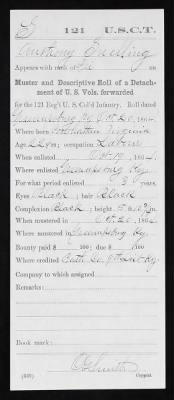 E 121 U.S.C.T.
Anthony
Appears with rank of Pvt on
Muster and Descriptive Roll of a Detach-
ment of U. S. Vols. forwarded
for the 121 Reg't U. S. Col'd Infantry. Roll dated
Greensburg Ky Oct 20, 1864.
Where born Virginia
Age 22 y'rs; occupation Laborer
When enlisted Oct 19, 1864.
Where enlisted Greensburg Ky.
For what period enlisted 3 years.
Eyes Black; hair Black
Complexion Black; height 5 ft. in.
When mustered in Oct. 20, 1864
Where mustered in Greensburg Ky.
Bounty paid $ 100; due $ 100
Where credited Ky.
Company to which assigned
Remarks:
Book mark:
(339) Copyist.